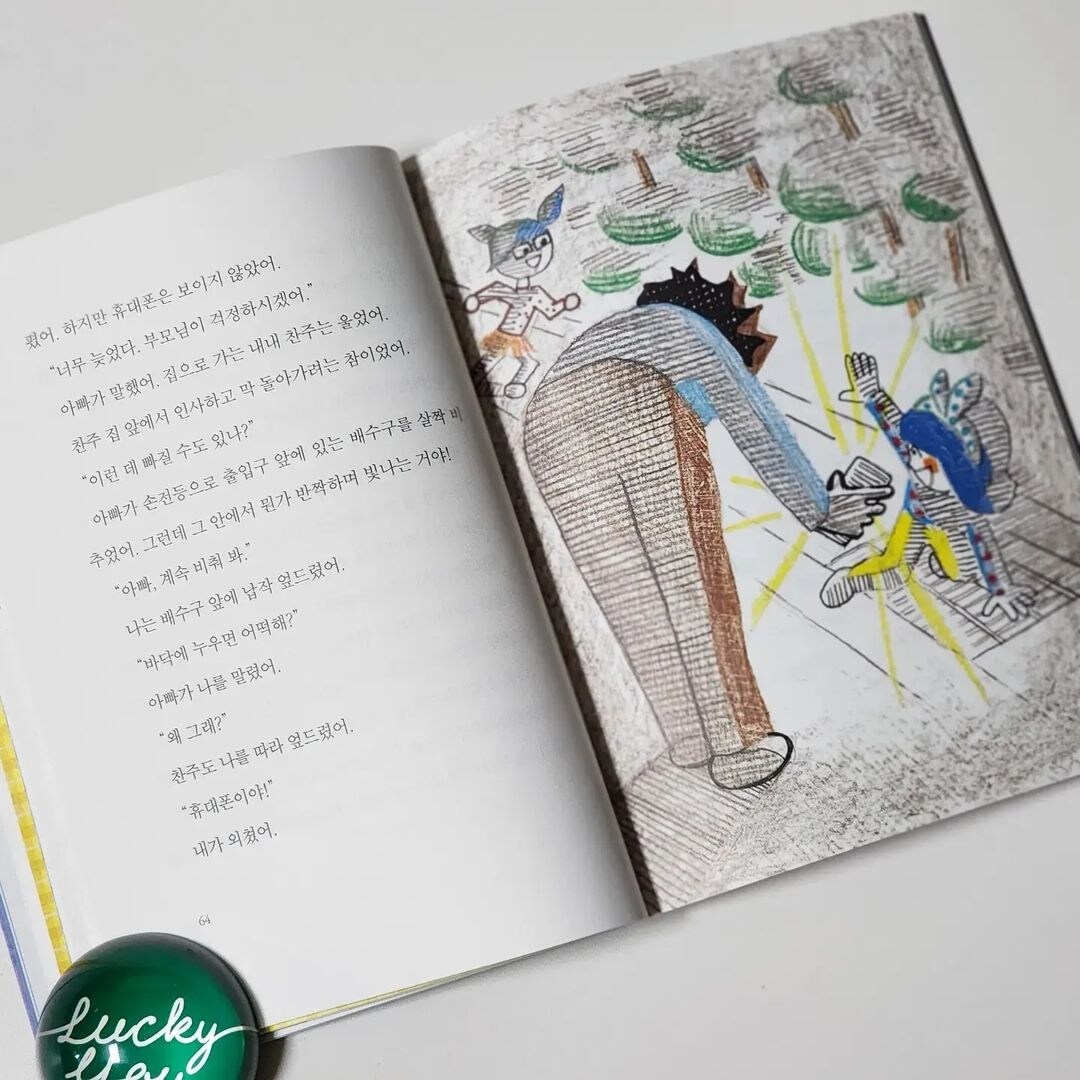 폈어. 하지만 휴대폰은 보이지 않았어.
“너무 늦었다. 부모님이 걱정하시겠어.”
아빠가 말했어. 집으로 가는 내내 찬주는 울었어.
찬주 집 앞에서 인사하고 막 돌아가려는 참이었어.
“이런 데 빠질 수도 있나?”
아빠가 손전등으로 출입구 앞에 있는 배수구를 살짝 비
추었어. 그런데 그 안에서 뭔가 반짝하며 빛나는 거야!
“아빠, 계속 비춰 봐.”
나는 배수구 앞에 납작 엎드렸어.
“바닥에 누우면 어떡해?”
아빠가 나를 말렸어.
“왜 그래?”
찬주도 나를 따라 엎드렸어.
“휴대폰이야!”
내가 외쳤어.
64
Lucky
You